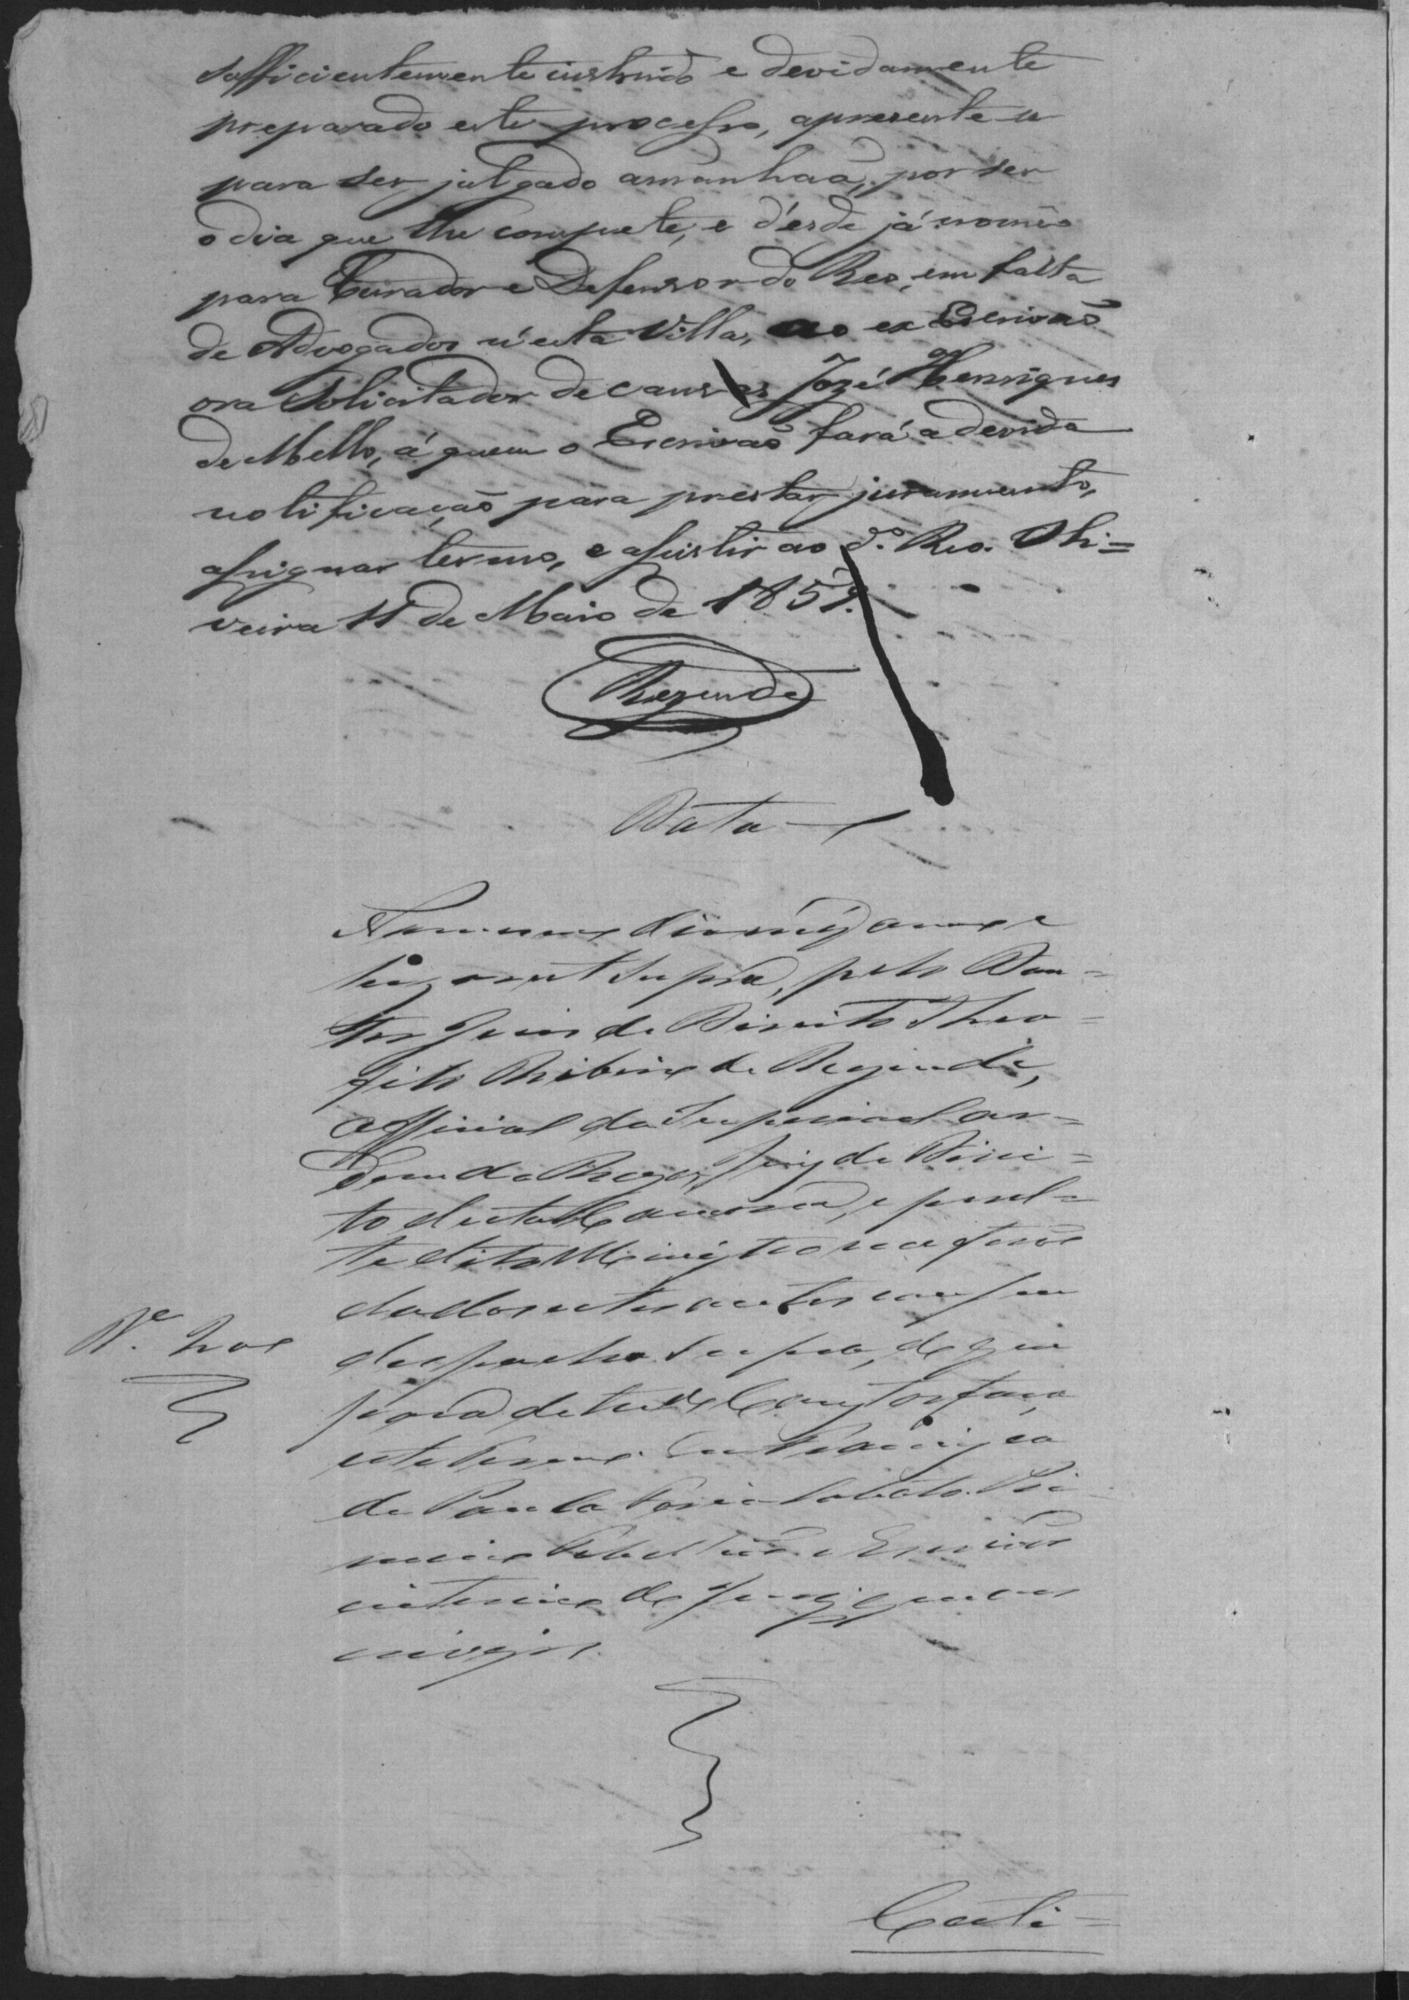 Sufficientemente instruido e devidamente
preparado este processo, apresente-se
para ser julgado amanhaã, por ser
o dia que lhe compete, e d'esde já nomeio
para Curador e Defensor do Reo, em falta
de Advogados n'esta Villa, ao ex Escrivaõ
ora Solicitador de causas José Henriques
de Mello, á quem o Escrivaõ fará a devida
notificaçaõ para prestar juramento,
assignar termo, e assistir ao d.º Reo. Oli=
veira 11 de Maio de 1859.
Rezende
Data
No mesmo dia mez anno e
lugar ut supra, pelo Dou=
tor Juiz de Direito Theo=
filo Ribeiro de Rezende,
Official da Imperial or=
dem da Roza, Juiz de Direi=
to desta Comarca, e por el=
le dito Ministro me forão
dados estes autos com seu
despacho supra, de que
para de tudo constar faço
este termo. Eu Francisco
de Paula
meiro Tabelliaõ e Escrivaõ
interino do Jury que es
crevy.
Certi=